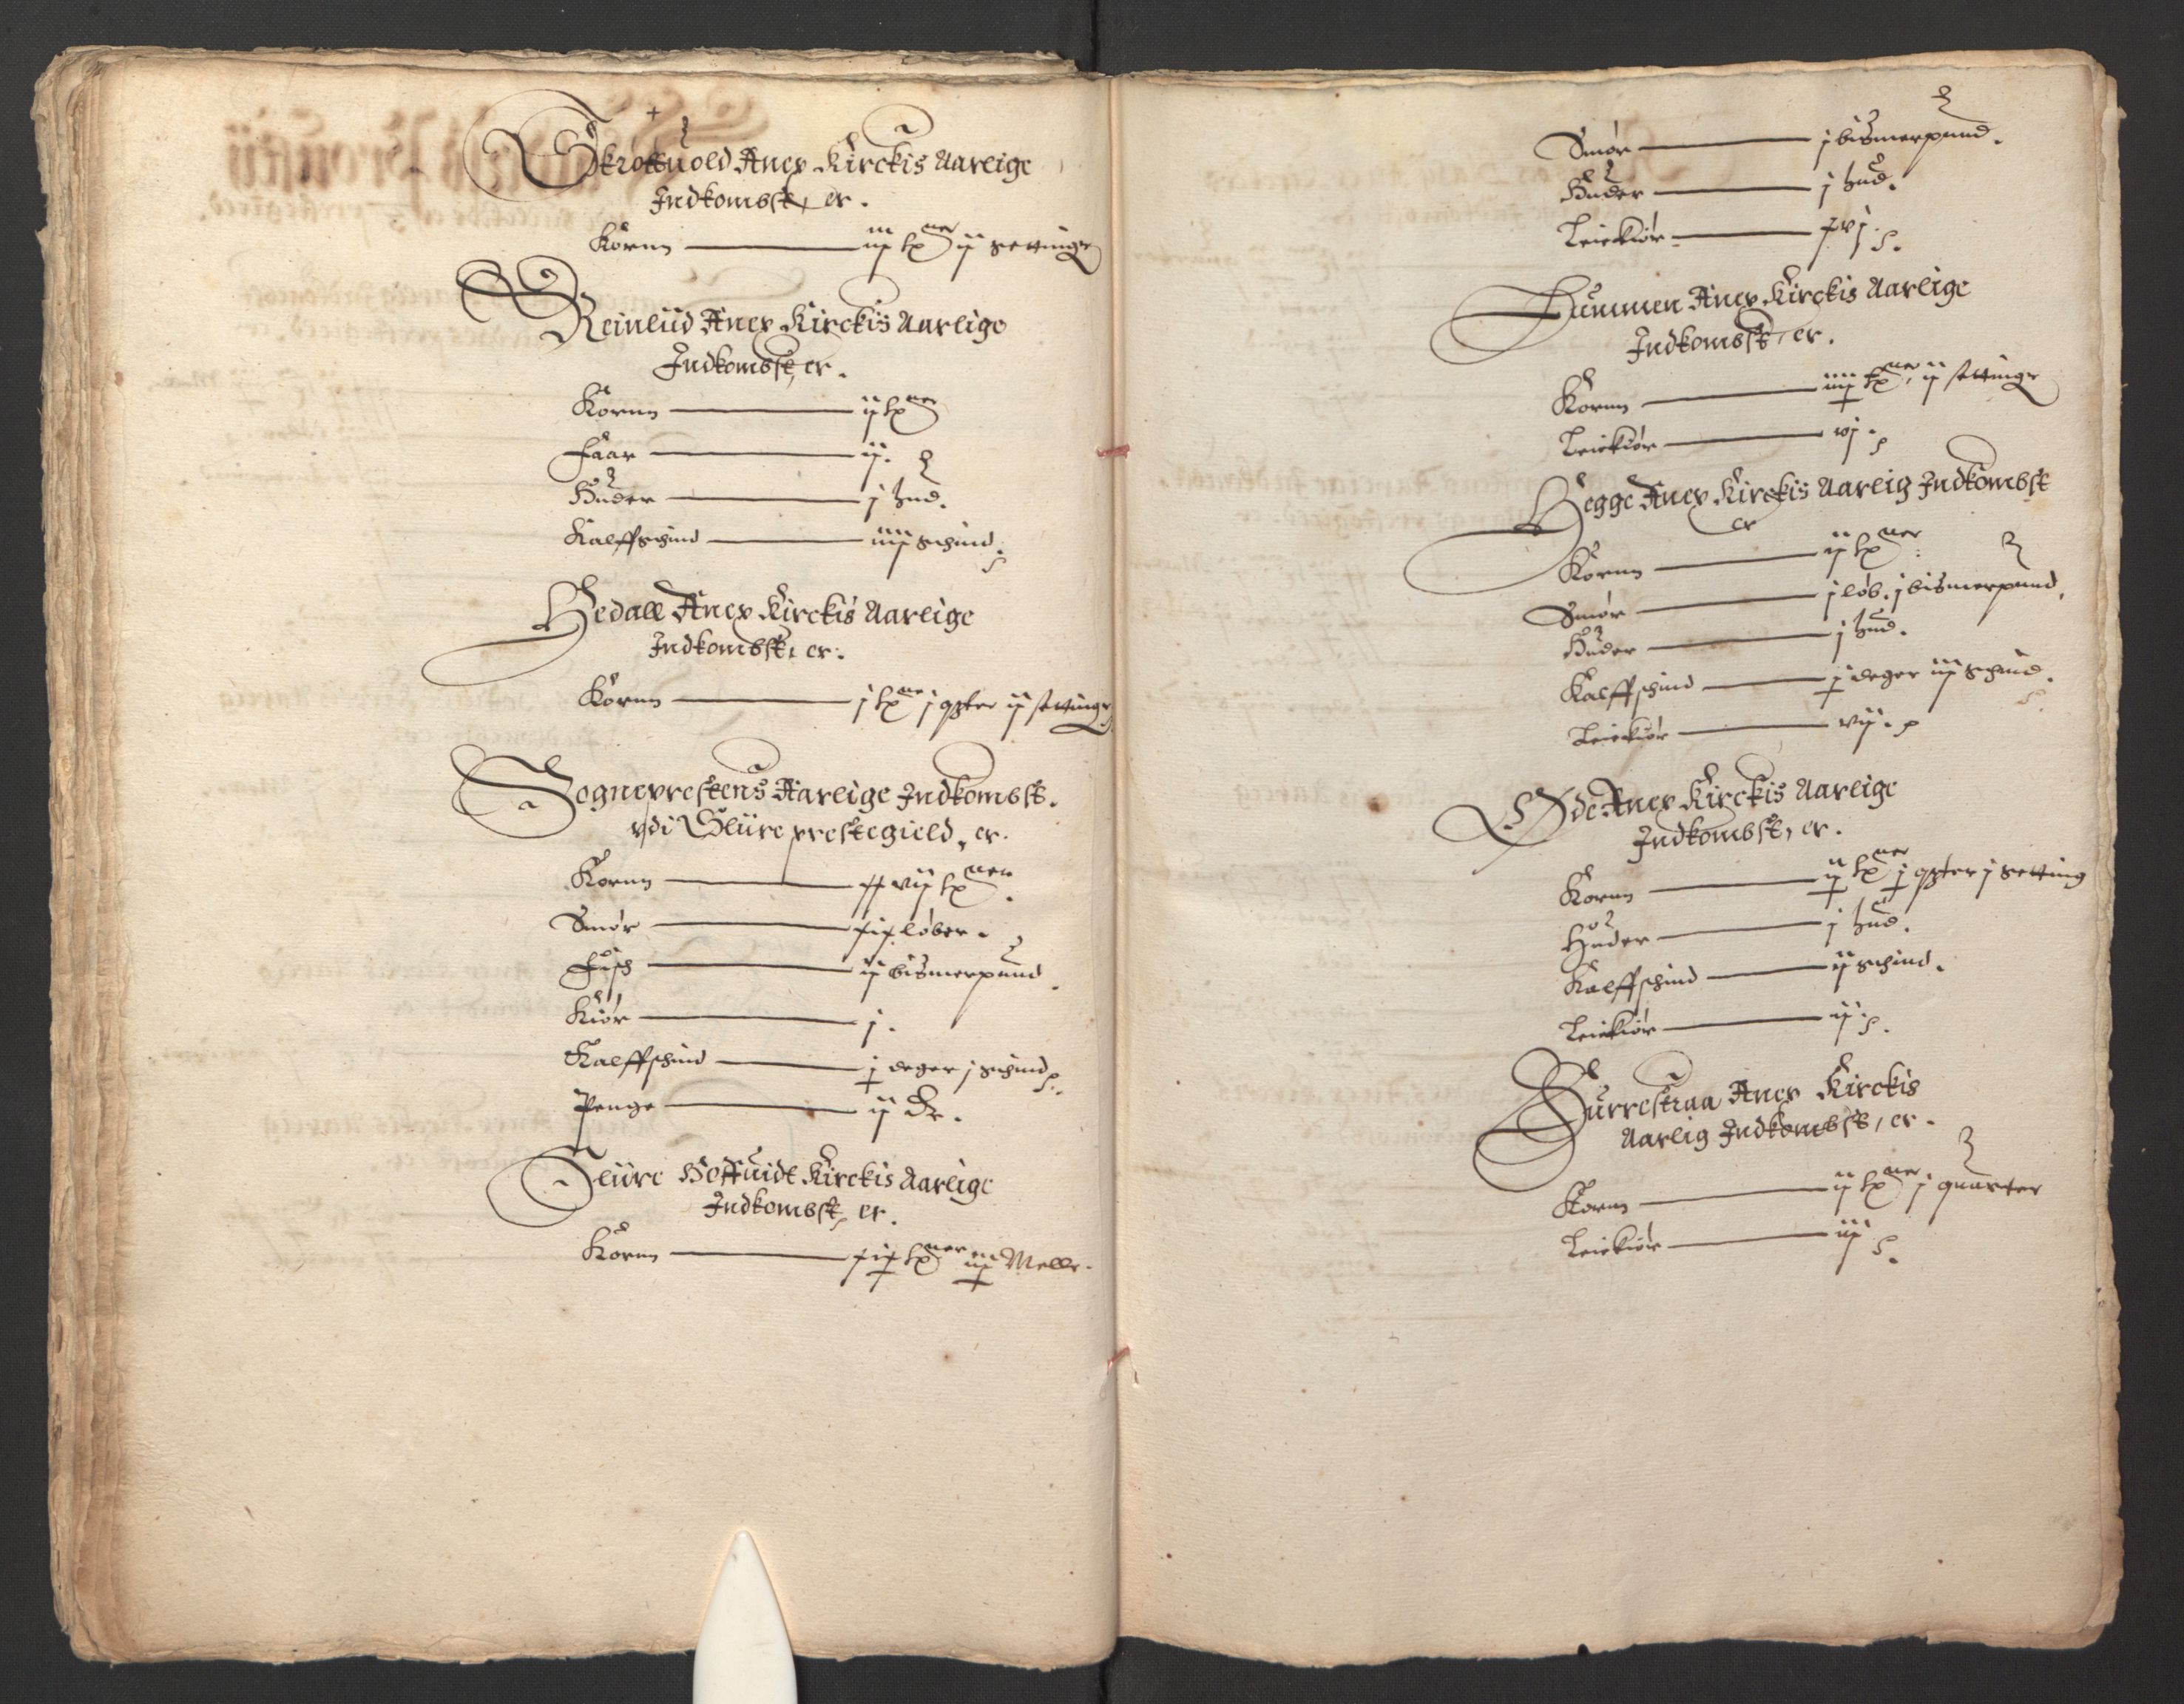 Skrottuold Anex Kirckis Aarlige
Indkombst, er.
Kornn iij tnner ij settinge
Reinliid Anex Kirckis Aarlige
Indkombst, er.
Kornn ij tnner
Faar ij.
Huder j hud.
Kalffschind iiij schind.
Hedall Anex Kirckis Aarlige
Indkombst, er.
Kornn j tne j qrter ij settinge
Sogneprestens Aarlige Indkombst.
vdi Sliire prestegield, er.
Kornn xxvij tnner.
Smør xix løber.
Fisch ij bismerpund.
Kiør j.
Kalffschind j deger j schind
Penge ij dr.
Sliire Hoffuidt Kirckis Aarlige
Indkombst, er.
Kornn xix tnner iij Melle.
Smør j bismerpund.
Huder j hud.
Leiekiør xvj.
Lummen Anex Kirckis Aarlige
Indkombst, er.
Kornn iiij tnner, ij settinge
Leiekiør vj.
Hegge Anex Kirckis Aarlig Indkombst
er
Kornn ij tnner
Smør j løb. j bismerpund,
Huder j hud.
Kalffschind j deger iij schind.
Leiekiør vij.
Øde Anex Kirckis Aarlige
Indkombst, er.
Kornn ij tnner j qrter j setting
Huder j hud.
Kalffschind ij schind.
Leiekiør ij.
Surrestraa Anex Kirckis
Aarlig Indkombst, er.
Kornn ij tnner j quarter
Leiekiør iij